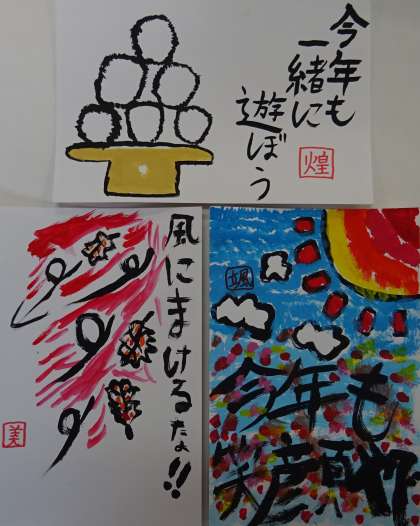 今年も
一緒に
遊ぼう
煌
風にまけるな!!
美
颯
今年も
笑顔で